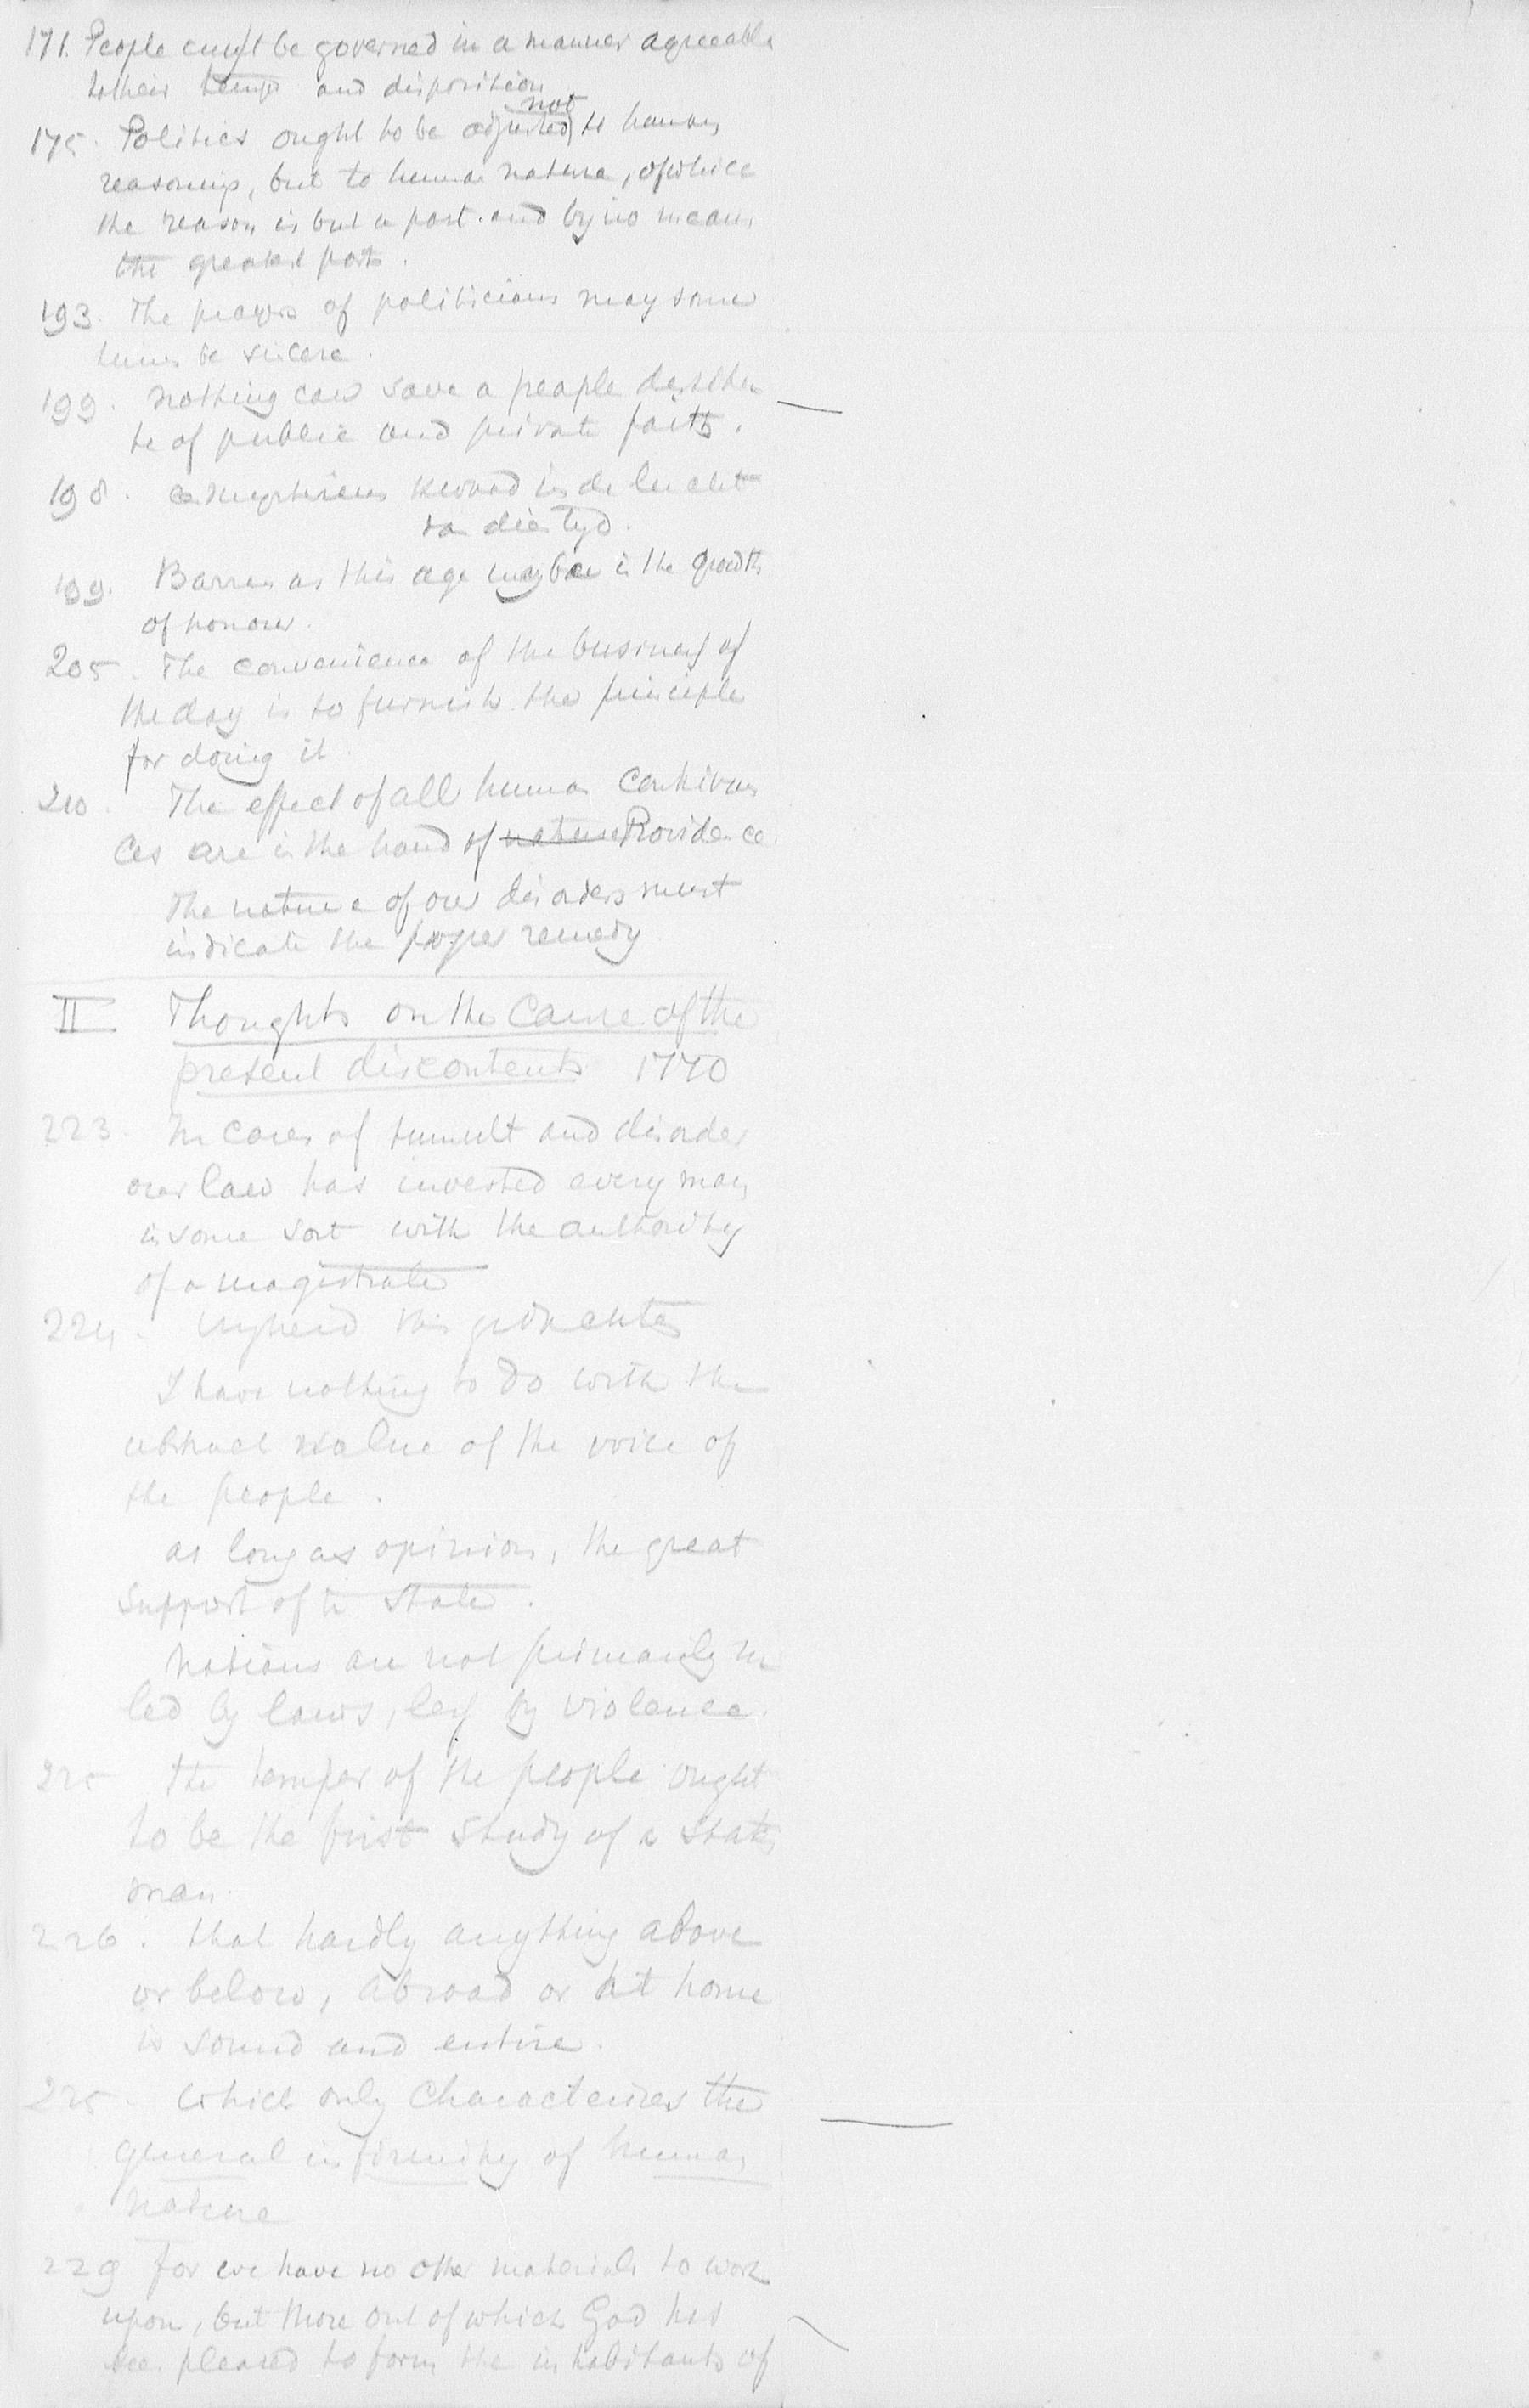 171. People must be governed in a manner agreeable
to their temper and disposition
not
175. Politics ought to be adjusted to human
reasonings, but to human nature, of which
the reason is but a part. and by no means
the greatest part.
193. The prayers of politicians may some
times be sincere.
199. Nothing can save a people destitu
te of public and private faith.
198. in de lucht
van die tijd.
199. Barren as this age may be in the growth
of honour.
205. The convenience of the business of
the day is to furnish the principle
for doing it.
210. The effect of all human contrivan
ces are in the hand of nature Providence.
The nature of our disorders must
indicate the proper remedy
II Thoughts on the Cause of the
present discontents 1770
223. In cases of tumult and disorder
our law has invested every man
in some sort with the authority
of a magistrate
224.
I have nothing to do with the
abstract value of the voice of
the people.
as long as opinion, the great
support of the State.
Nations are not primarily ru
led by laws, less by violence.
225 the temper of the people ought
to be the first study of a States
man.
226. that hardly anything above
or below, abroad or at home
is sound and entire.
225. Which only characterizes the
general infirmity of human
nature
229 for we have no other materials to work
upon, but those out of which God has
been pleased to form the inhabitants of